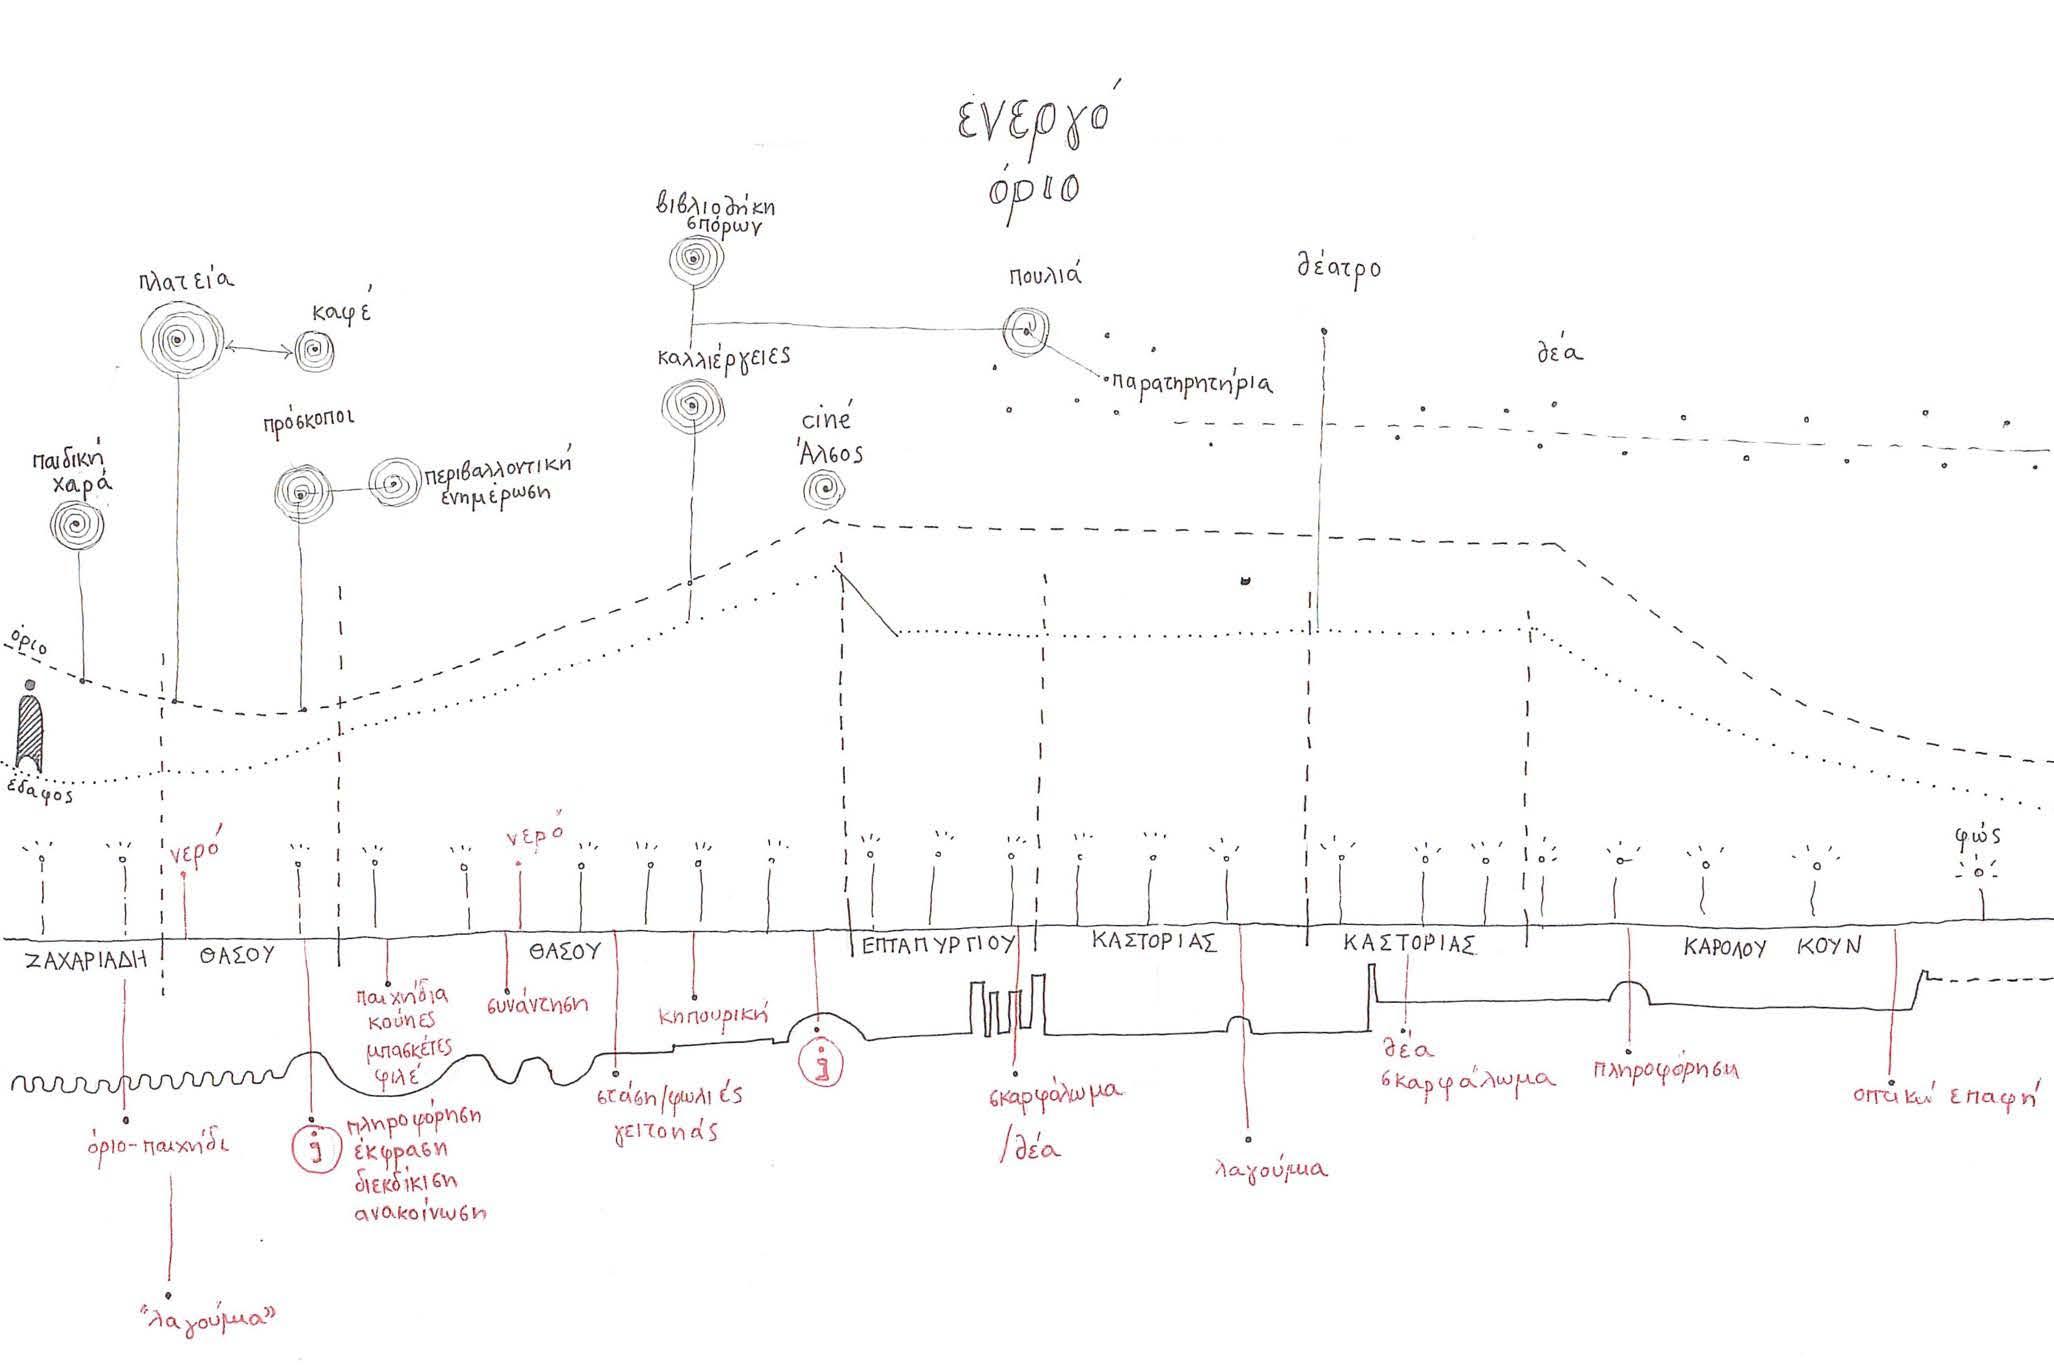 ενεργό
όριο
βιβλιοθήκη
σπόρων
πλατεία
καφέ
πουλιά
θέατρο
θέα
καλλιέργειες
παρατηρητήρια
πρόσκοποι
ciné
Άλσος
παιδική
χαρά
περιβαλλοντική
ενημέρωση
όριο
έδαφος
νερό
νερό
φώς
ΖΑΧΑΡΙΑΔΗ
ΘΑΣΟΥ
ΘΑΣΟΥ
ΕΠΤΑΠΥΡΓΙΟΥ
ΚΑΣΤΟΡΙΑΣ
ΚΑΣΤΟΡΙΑΣ
ΚΑΡΟΛΟΥ ΚΟΥΝ
παιχνίδια
κούνιες
μπασκέτες
φιλέ
συνάντηση
κηπουρική
i
στάση/φωλιές
γειτονιάς
σκαρφάλωμα
/θέα
λαγούμια
θέα
σκαρφάλωμα
πληροφόρηση
οπτική επαφή
όριο-παιχνίδι
i
πληροφόρηση
έκφραση
διεκδίκιση
ανακοίνωση
"λαγούμια"